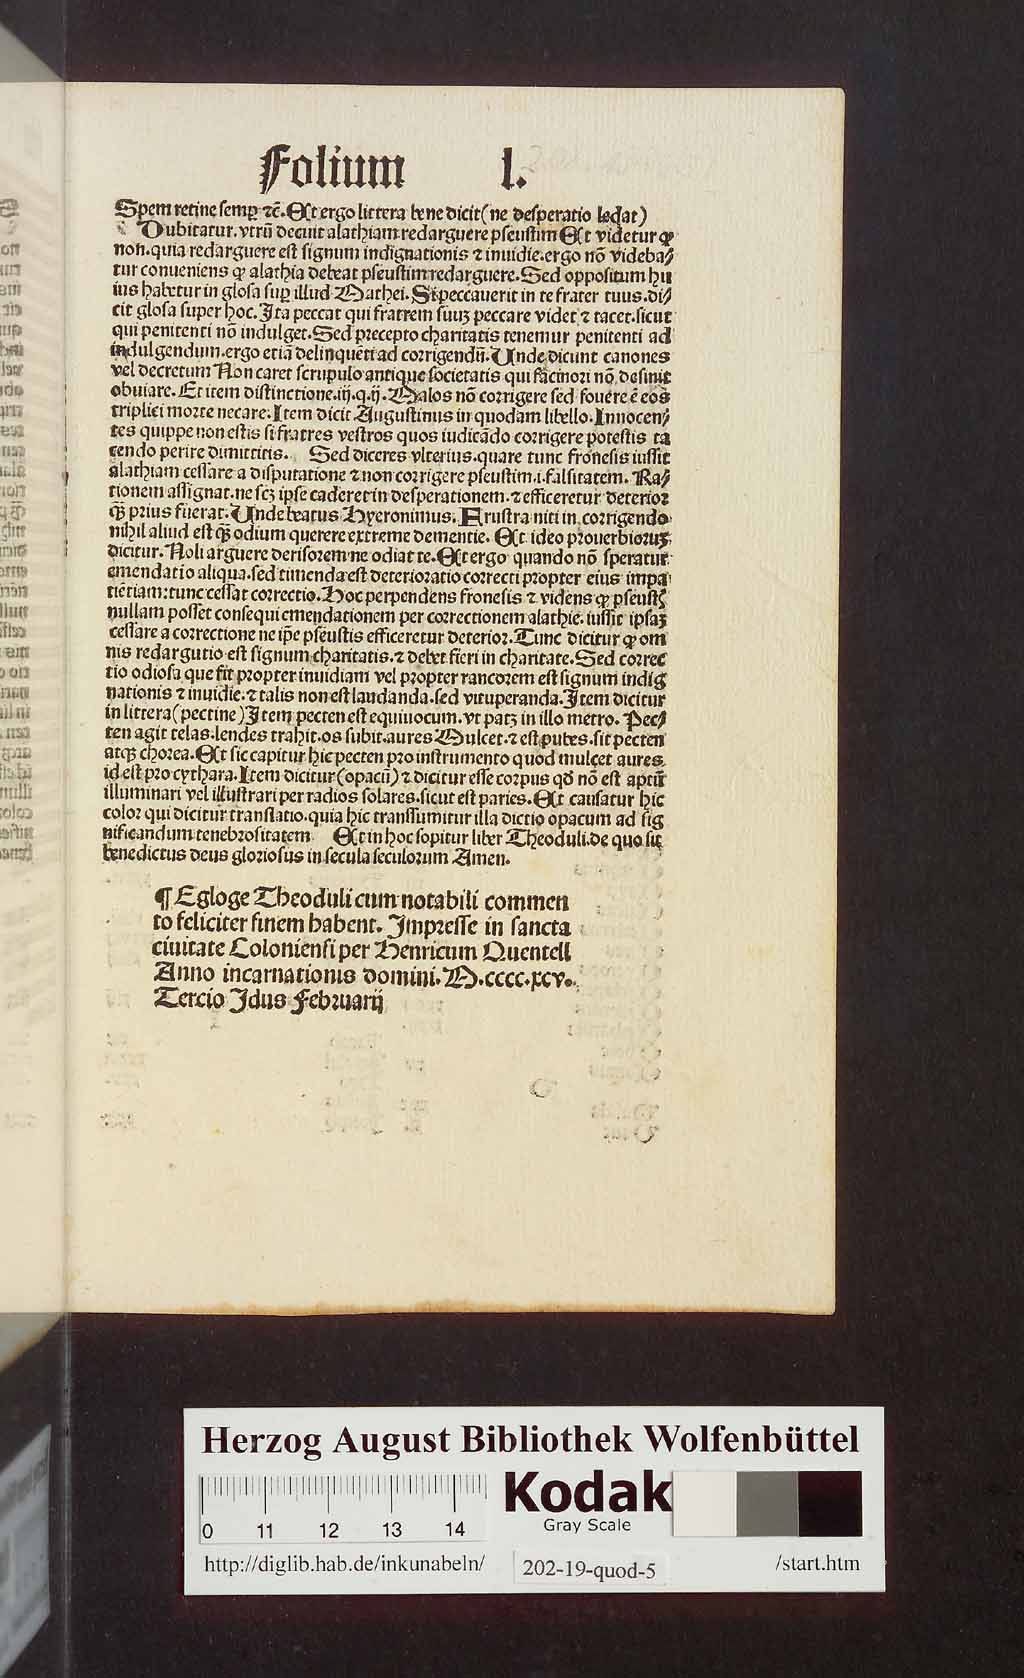 Folium l.
Spem retine semꝑ ⁊c̄. Et ergo littera bene dicit (ne desperatio ledat)
Dubitatur. vtrū decuit alathiam redarguere pseustim Et videtur ꝙ
non. quia redarguere est signum indignationis ⁊ inuidie. ergo nō videba⸗
tur conueniens ꝙ alathia debeat pseustim redarguere. Sed oppositum hu
ius habetur in glosa suꝑ illud Mathei. Si peccauerit in te frater tuus. di⸗
cit glosa super hoc. Ita peccat qui fratrem suuꝫ peccare videt ⁊ tacet. sicut
qui penitenti nō indulget. Sed precepto charitatis tenemur penitenti ad
indulgendum. ergo etiā delinquēti ad corrigendū. Unde dicunt canones
vel decretum Non caret scrupulo antique societatis qui facinori nō desinit
obuiare. Et item distinctione. iij. q. ij. Malos nō corrigere sed fouere ē eos
triplici morte necare. Item dicit Augustinus in quodam libello. Innocen⸗
tes quippe non estis si fratres vestros quos iudicādo corrigere potestis ta
cendo perire dimittitis. Sed diceres vlterius. quare tunc fronesis iussit
alathiam cessare a disputatione ⁊ non corrigere pseustim. i. falsitatem. Ra⸗
tionem assignat. ne scꝫ ipse caderet in desperationem. ⁊ efficeretur deterior
qꝫ̄ prius fuerat. Unde beatus Hyeronimus. Frustra niti in corrigendo
nihil aliud est qꝫ̄ odium querere extreme dementie. Et ideo prouerbioruꝫ
dicitur. Noli arguere derisorem ne odiat te. Et ergo quando nō speratur
emendatio aliqua. sed timenda est deterioratio correcti propter eius impa
tiētiam: tunc cessat correctio. Hoc perpendens fronesis ⁊ videns ꝙ pseustꝭ
nullam posset consequi emendationem per correctionem alathie. iussit ipsaꝫ
cessare a correctione ne ip̄e pseustis efficeretur deterior. Tunc dicitur ꝙ om
nis redargutio est signum charitatis. ⁊ debet fieri in charitate. Sed correc
tio odiosa que fit propter inuidiam vel propter rancorem est signum indig
nationis ⁊ inuidie. ⁊ talis non est laudanda. sed vituperanda. Item dicitur
in littera (pectine) Item pecten est equiuocum. vt patꝫ in illo metro. Pec⸗
ten agit telas. lendes trahit. os subit. aures Mulcet. ⁊ est pubes. sit pecten
atqꝫ chorea. Et sic capitur hic pecten pro instrumento quod mulcet aures
id est pro cythara. Item dicitur (opacū) ⁊ dicitur esse corpus qd̄ nō est aptū
illuminari vel illustrari per radios solares. sicut est paries. Et causatur hic
color qui dicitur translatio. quia hic transsumitur illa dictio opacum ad sig
nificandum tenebrositatem Et in hoc sopitur liber Theoduli. de quo sit
benedictus deus gloriosus in secula seculorum Amen.
¶ Egloge Theoduli cum notabili commen
to feliciter finem habent. Impresse in sancta
ciuitate Coloniensi per Henricum Quentell
Anno incarnationis domini. M.cccc.xcv.
Tercio Idus Februarij
Herzog August Bibliothek Wolfenbüttel
0 11 12 13 14
Kodak
Gray Scale
http://diglib.hab.de/inkunabeln/ 202-19-quod-5 /start.htm